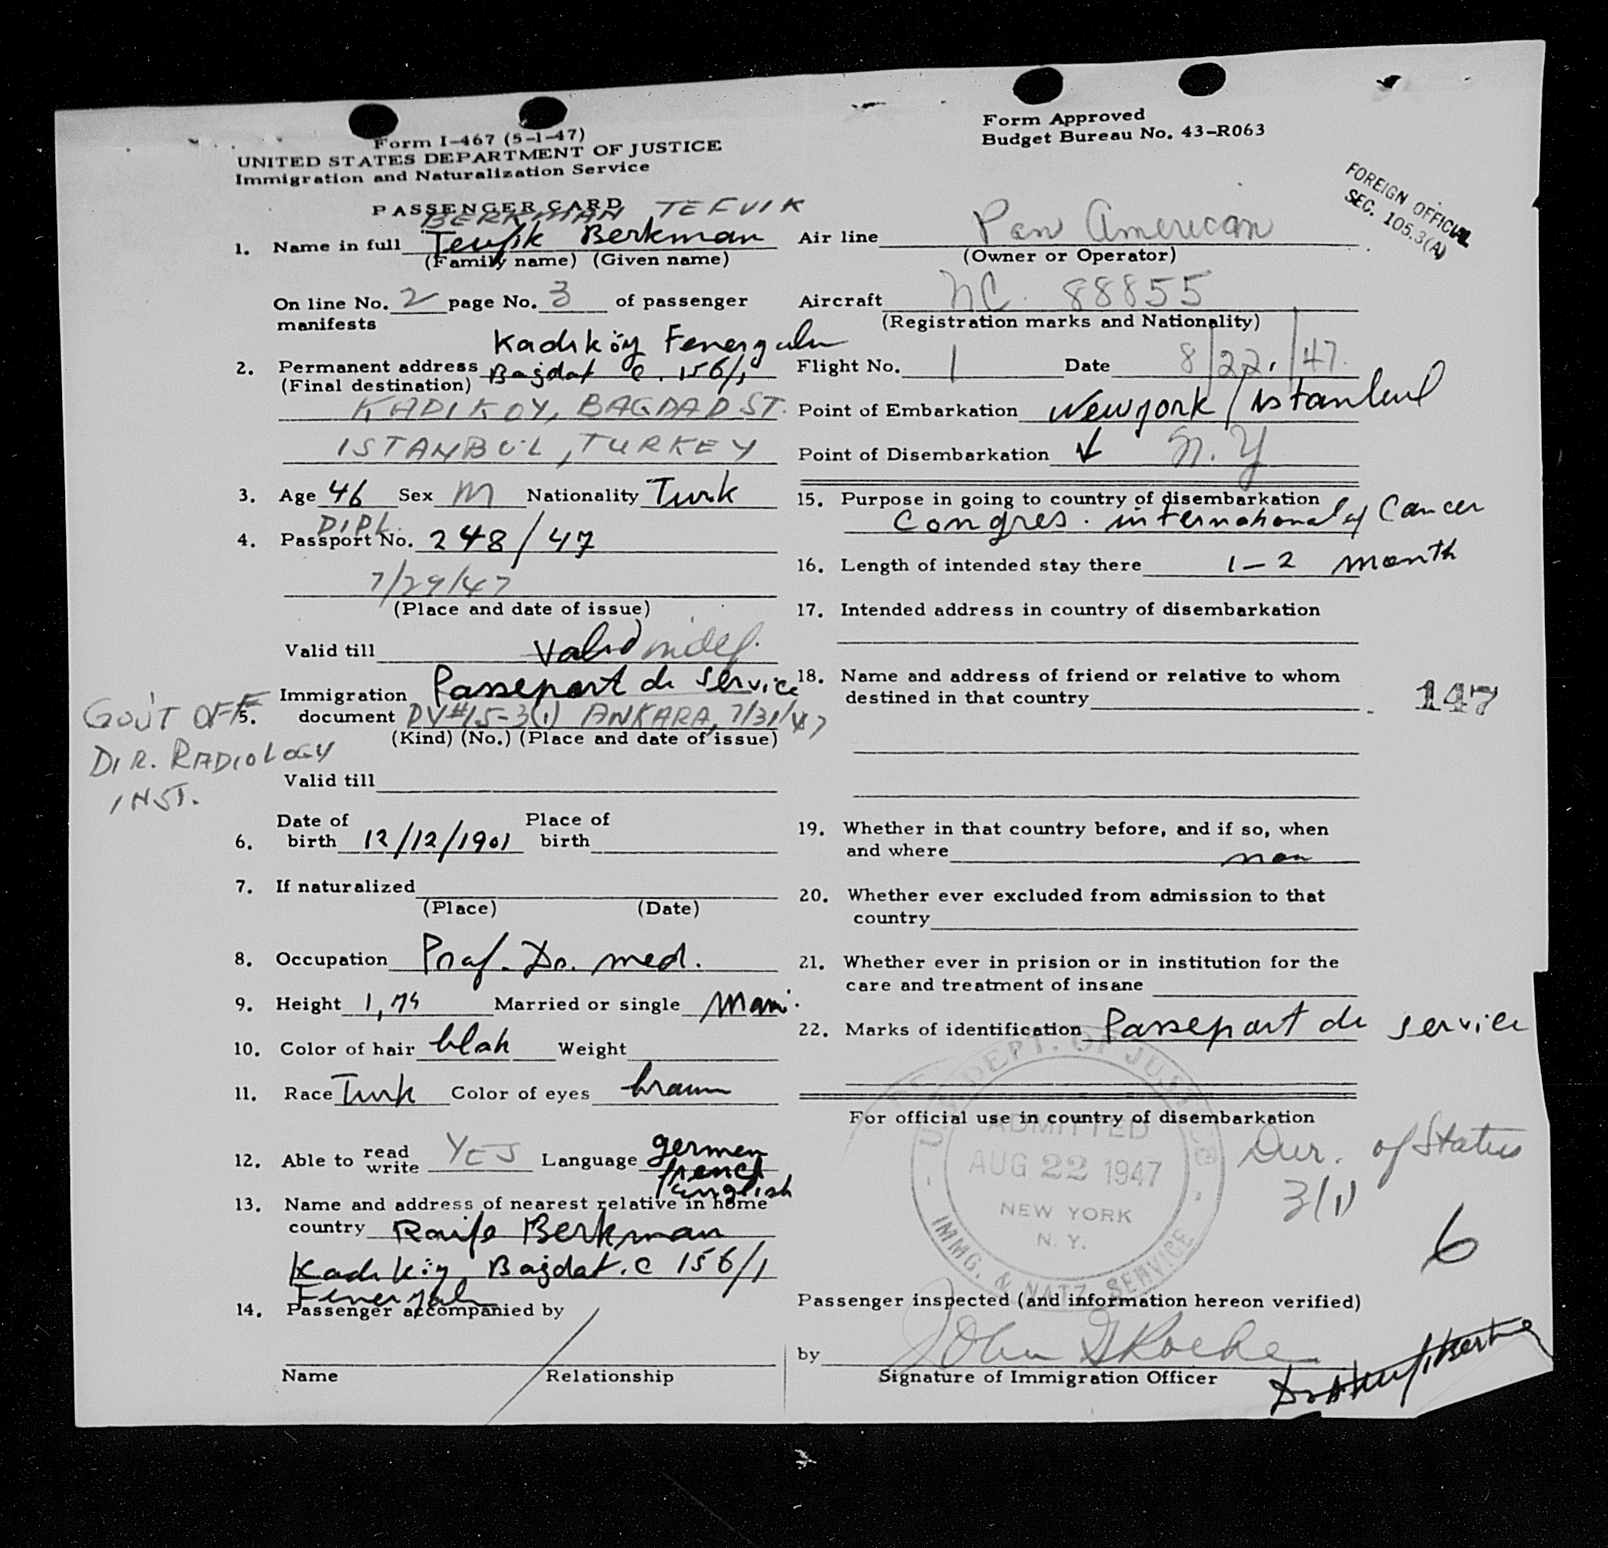 Form I-467 (5-1-47)
UNITED STATES DEPARTMENT OF JUSTICE
Immigration and Naturalization Service
Form Approved
Budget Bureau No. 43-R063
FOREIGN OFFICIAL
SEC. 105.3(A)
PASSENGER CARD
BERKMAN TEFVIK
1. Name in full Tevfik Berkman
(Family name) (Given name)
On line No. 2 page No. 3 of passenger
manifests
Kadıköy
2. Permanent address Bagdat C. 156/1
(Final destination)
KADIKOY, BAGDAD ST.
ISTANBUL, TURKEY
3. Age 46 Sex M Nationality Turk
DIPL.
4. Passport No. 248/47
7/29/47
(Place and date of issue)
Valid till valid indef.
Passeport de service
5. Immigration
document DV#15-3(1) ANKARA, 7/31/47
(Kind) (No.) (Place and date of issue)
GOV'T OFF
DIR. RADIOLOGY
INST.
Valid till
6. Date of birth 12/12/1901 Place of birth
7. If naturalized
(Place) (Date)
8. Occupation Prof. Dr. med.
9. Height 1,75 Married or single Mari.
10. Color of hair blak Weight
11. Race Turk Color of eyes braun
12. Able to read write YES Language germen
french
english
13. Name and address of nearest relative in home
country Raife Berkman
Kadıköy Bagdat.C 156/1
14. Passenger accompanied by
Name Relationship
Air line Pan American
(Owner or Operator)
Aircraft NC. 88855
(Registration marks and Nationality)
Flight No. 1 Date 8/22/47.
Point of Embarkation Newyork / istanbul
Point of Disembarkation N.Y
15. Purpose in going to country of disembarkation
Congres. international of Cancer
16. Length of intended stay there 1-2 month
17. Intended address in country of disembarkation
18. Name and address of friend or relative to whom
destined in that country
147
19. Whether in that country before, and if so, when
and where non
20. Whether ever excluded from admission to that
country
21. Whether ever in prision or in institution for the
care and treatment of insane
22. Marks of identification Passeport de service
For official use in country of disembarkation
U.S. DEPT. OF JUSTICE
ADMITTED
AUG 22 1947
NEW YORK
N. Y.
IMMG. & NATZ. SERVICE
Dur. of Status
3(1)
6
Passenger inspected (and information hereon verified)
by John
Signature of Immigration Officer